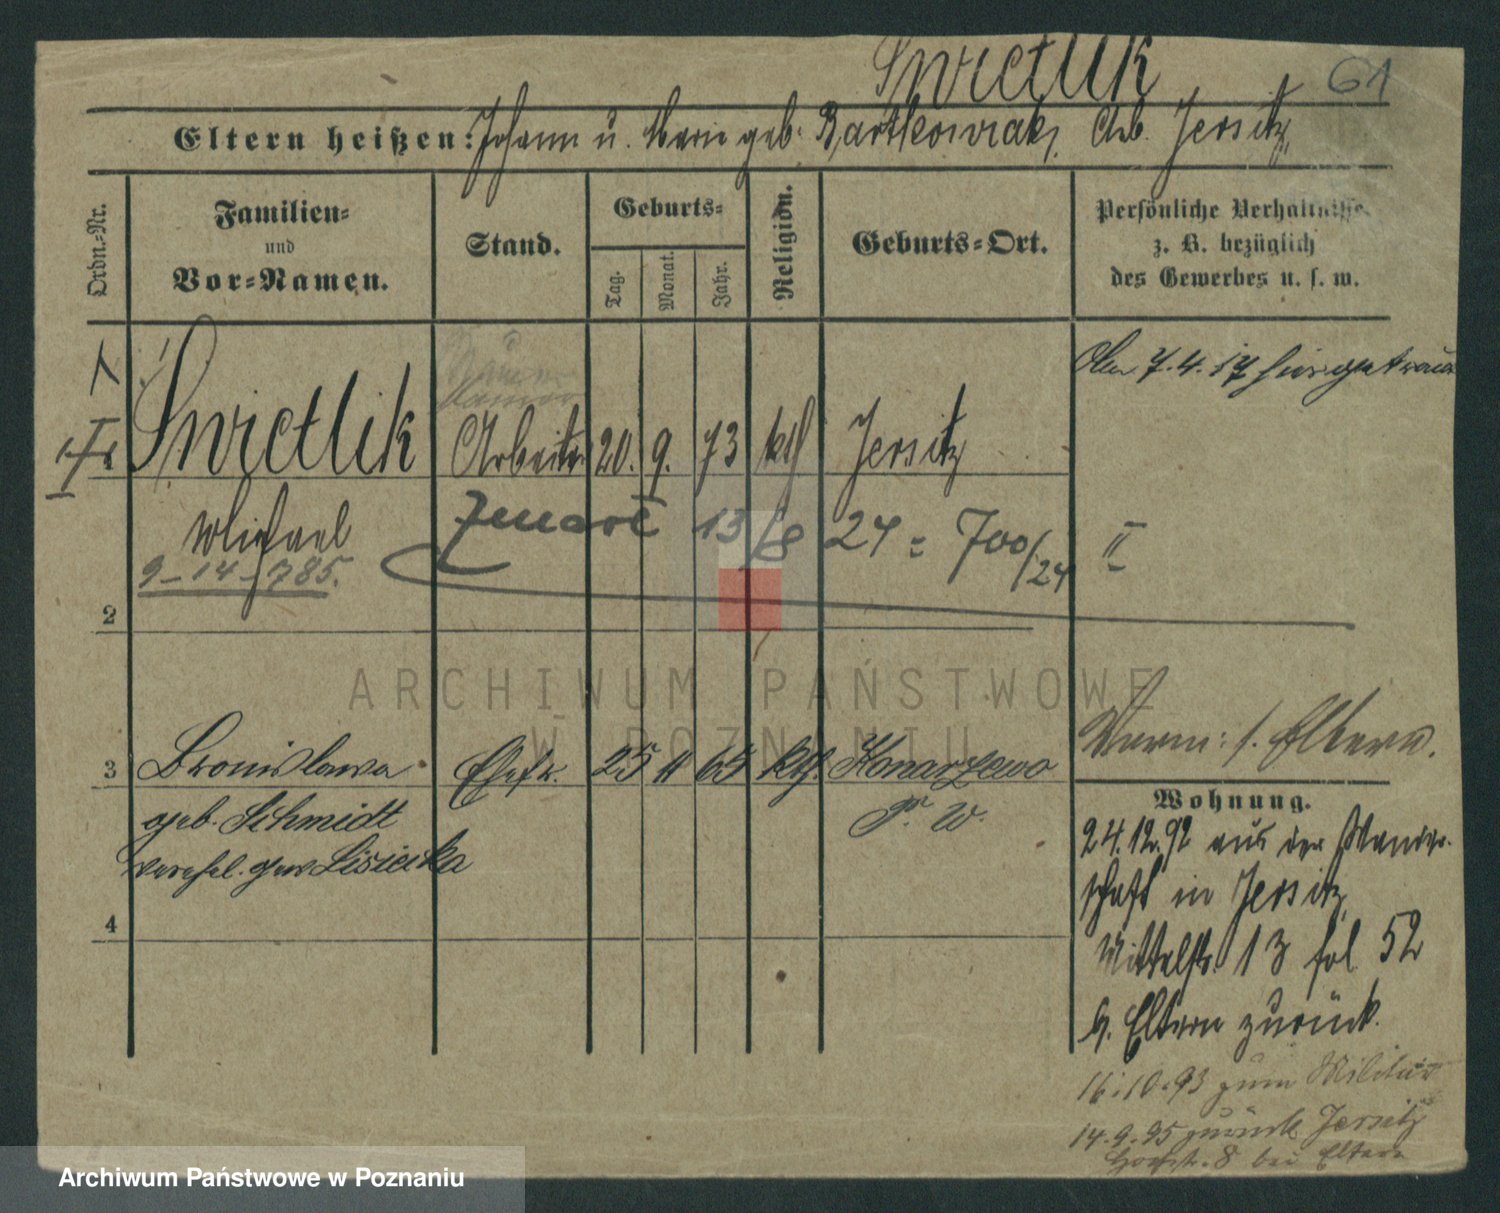 Swietlik 61
Eltern heißen: Johann u. Marie geb. Bartkowiak, Arb. Jersitz
Ordn.-Nr.
Familien-
und
Vor-Namen.
Stand.
Geburts-
Tag. Monat. Jahr.
Religion.
Geburts-Ort.
Persönliche Verhältnisse
z. B. bezüglich
des Gewerbes u. s. w.
1 Swietlik Arbeiter 20. 9. 73 kth Jersitz
7.4.17
Michael
9-14-785.
13/8 24 = 700/24 II
2
3 Bronislawa Ehefr. 25 11 65 kth. Konarzewo
geb. Schmidt P. W.
verehel. gew. Lisiecka
Verm: s. Eltern.
4
Wohnung.
24.12.92 aus der
schaft in Jersitz
Mittelstr. 13 fol 52
b. Eltern zurück.
16.10.93 zum Militär
14.9.95 zurück Jersitz
8 bei Eltern
ARCHIWUM PAŃSTWOWE
W POZNANIU
Archiwum Państwowe w Poznaniu